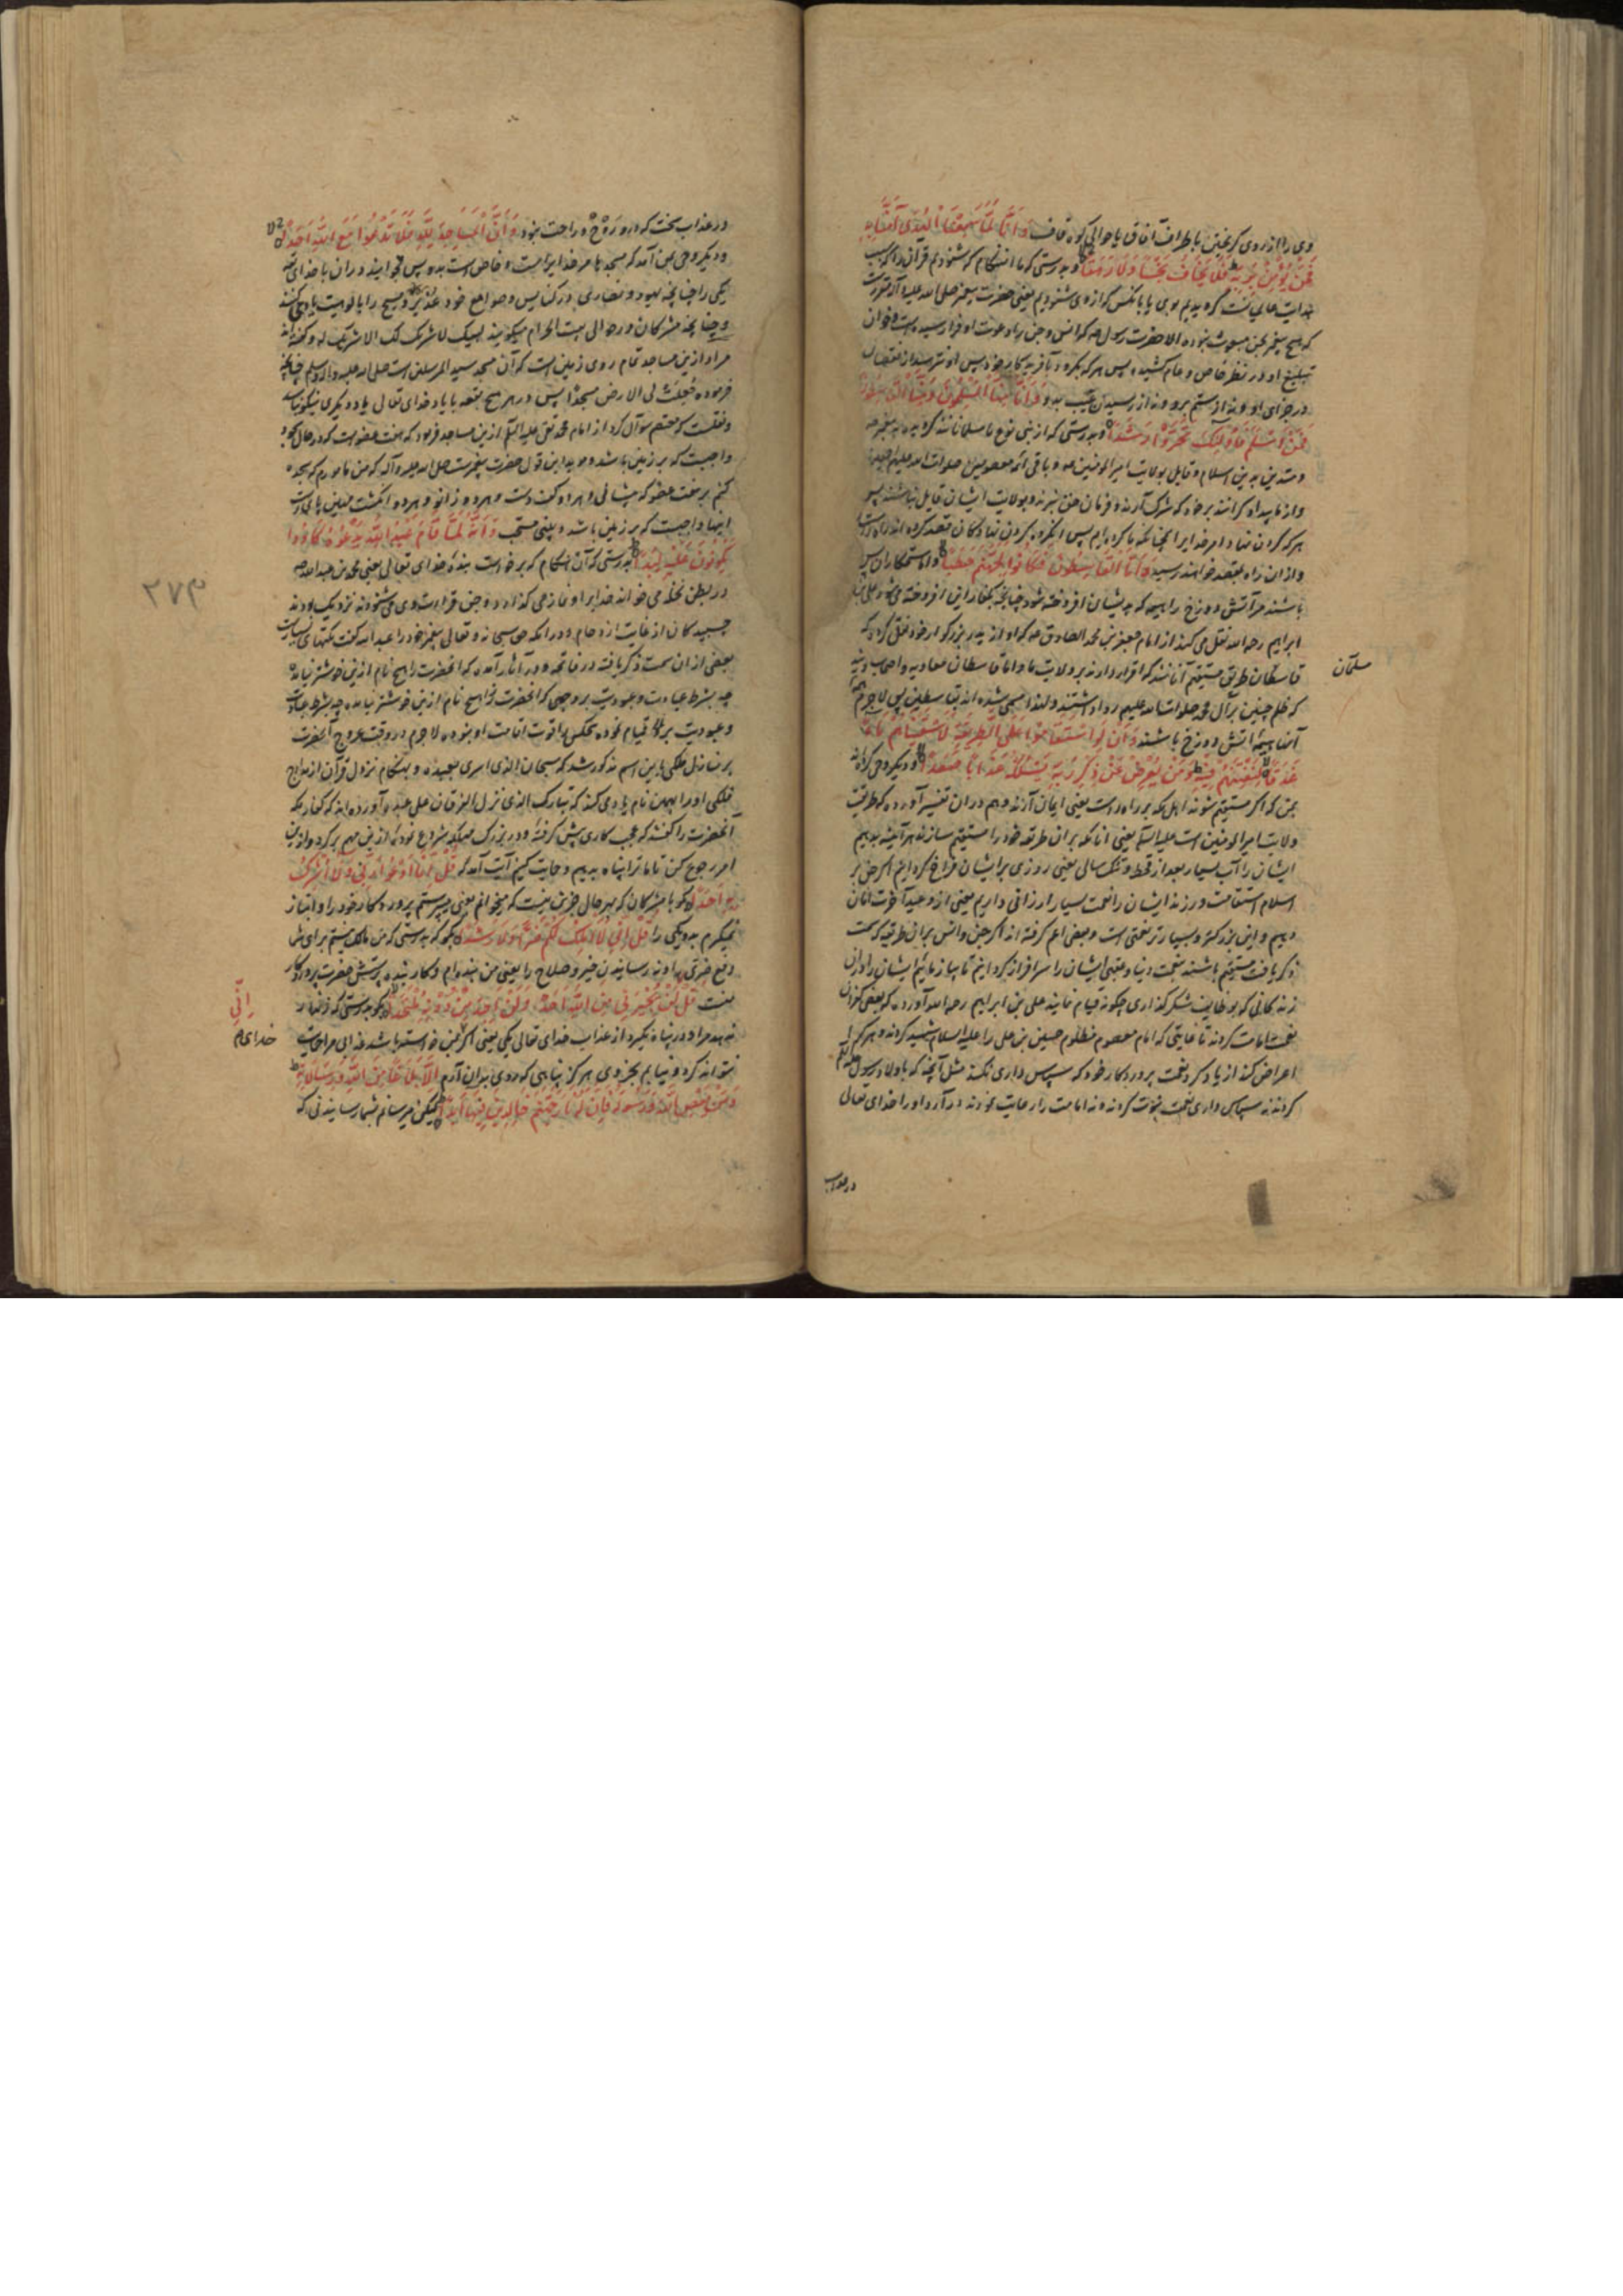 وی را از روی گریختن باطراف آفاق یا حوالی کوه قاف وَأَنَّا لَمَّا سَمِعْنَا الْهُدَىٰ آمَنَّا بِهِ
فَمَنْ يُؤْمِنْ بِرَبِّهِ فَلَا يَخَافُ بَخْسًا وَلَا رَهَقًا و بدرستی که ما آن هنگام که شنودیم قرآن را که سبب
هدایت گرویدیم بوی یعنی حضرت پیغمبر صلی الله علیه و آله
که هیچ پیغمبر بجن مبعوث نبوده الا حضرت رسول که انس و جن را دعوت او فرا رسیده است و خوان
تبلیغ او در نظر خاص و عام کشیده پس هر که بگرود بآفریدکار خود پس او نترسد از نقصان
در جزای او و نه از ستم برو و نه از رسیدن عیب بدو وَأَنَّا مِنَّا الْمُسْلِمُونَ وَمِنَّا الْقَاسِطُونَ
فَمَنْ أَسْلَمَ فَأُولَٰئِكَ تَحَرَّوْا رَشَدًا و بدرستی که از بنی نوع ما مسلمانانند گرویده به پیغمبر
و متدین بدین اسلام و قایل بولایت امیر المومنین و باقی ائمه معصومین صلوات الله علیهم اجمعین
و از ما بیدادگرانند بر خود که شرک آرند و فرمان حق نبرند و بولایت ایشان قایل نباشند پس
هر که گردن نهاد امر خدایرا پس آنگروه گردن نهادگان قصد کرده اند راه راست
و از آن راه بمقصد خواهند رسید وَأَمَّا الْقَاسِطُونَ فَكَانُوا لِجَهَنَّمَ حَطَبًا و اما ستمکاران پس
باشند مر آتش دوزخ را هیمه که بدیشان افروخته شود چنانچه بکفار انس افروخته می شود علی بن
ابراهیم رحمه الله نقل می کند از امام جعفر بن محمد الصادق که او از پدر بزرگوار خود نقل کرده که
مسلمان
قاسطان طریق مستقیم آنانند که اقرار دارند بر ولایت ما و اما قاسطان معاویه و اصحاب ویند
که ظلم چنین بر آل محمد صلوات الله علیهم روا داشتند و لهذا مسمی شده اند بقاسطین پس لاجرم
آنها هیمه آتش دوزخ باشند وَأَنْ لَوِ اسْتَقَامُوا عَلَى الطَّرِيقَةِ لَأَسْقَيْنَاهُمْ مَاءً
غَدَقًا لِنَفْتِنَهُمْ فِيهِ وَمَنْ يُعْرِضْ عَنْ ذِكْرِ رَبِّهِ يَسْلُكْهُ عَذَابًا صَعَدًا و دیگر وحی کرده اند
بمن که اگر مستقیم شوند اهل مکه بر راه راست یعنی ایمان آرند و هم در آن تفسیر آورده که طریقت
ولایت امیر المومنین است علیه السلم یعنی آنانکه بر آن طریقه خود را مستقیم سازند هر آینه بدهیم
ایشان را آب بسیار بعد از قحط و تنگ سالی یعنی روزی بر ایشان فراخ گردانیم اگر جن بر
اسلام استقامت ورزند ایشان را نعمت بسیار ارزانی داریم یعنی از وعید آخرت امان
دهیم و این بزرگتر و بسیارتر نعمتی است و بعضی اعم گرفته اند اگر جن و انس بر آن طریقه که سمت
ذکر یافت مستقیم باشند بنعمت دنیا و عقبی ایشان را سرافراز گردانیم تا بیازمائیم ایشان را در آن
زندگانی که بوظایف شکرگذاری چگونه قیام نمایند علی بن ابراهیم رحمه الله آورده که بعضی کفران
نعمت امامت کردند تا غایتی که امام معصوم مظلوم حسین بن علی را علیه السلام شهید کردند و هر که
اعراض کند از یاد کرد نعمت پروردگار خود که سپاس داری نکند مثل آنچه که با اولاد رسول
کردند نه سپاس داری نعمت نبوت کردند و نه امامت را رعایت نمودند در آرد او را خدای تعالی
در عذاب
در عذاب سخت که درو روح و راحت نبود وَأَنَّ الْمَسَاجِدَ لِلَّهِ فَلَا تَدْعُوا مَعَ اللَّهِ أَحَدًا
و دیگر وحی بمن آمد که مسجدها مر خدایراست و خاص است بدو پس مخوانید در آن با خدای
یکی را چنانچه یهود و نصاری در کنایس و صوامع خود عزیر و مسیح را بالوهیت یاد می کنند
و چنانچه مشرکان در حوالی بیت الحرام میگویند لبیک لا شریک لک الا شریک لک و گفته اند
مراد ازین مساجد تمام روی زمین است که آن مسجد سید المرسلین است صلی الله علیه و آله و سلم چنانچه
فرموده جعلت لی الارض مسجدا پس در هر هیچ بقعه با یاد خدای تعالی یاد دیگری نیکو نباشد
و نقلست که معتصم سوال کرد از امام محمد تقی علیه السلم ازین مساجد فرمود که هفت عضو است که در حال سجود
واجبست که بر زمین باشد و موید این قول حضرت پیغمبرست صلی الله علیه و آله که من مامورم که سجده
کنم بر هفت عضو که پیشانی و هر دو کف دست و هر دو زانو و هر دو انگشت مهین پای است
اینها واجبست که بر زمین باشد و بینی مستحب وَأَنَّهُ لَمَّا قَامَ عَبْدُ اللَّهِ يَدْعُوهُ كَادُوا
يَكُونُونَ عَلَيْهِ لِبَدًا و بدرستی که آن هنگام که برخاست بنده خدای تعالی یعنی محمد بن عبد الله
در بطن نخله می خواند خدایرا و نماز می گذارد و جن قراءت وی می شنودند نزدیک بودند
چسبیدگان از غایت ازدحام و در آنکه حق سبحانه و تعالی پیغمبر خود را عبد الله گفت نکتهای بسیارست
بعضی از آن سمت ذکر یافته در فاتحه و در آثار آمده که آنحضرت را هیچ نام ازین خوشتر نیامده
چه بشرط عبادت و عبودیت بر وجهی که آنحضرت را هیچ نام ازین خوشتر نیامده چه بشرط عبادت
و عبودیت قیام نموده هیچکس را قوت اقامت او نبوده لاجرم در وقت عروج آنحضرت
بر منازل ملکی باین اسم مذکور شد که سبحان الذی اسری بعبده و بهنگام نزول قرآن از مدارج
فلکی او را بهمین نام یاد می کند که تبارک الذی نزل الفرقان علی عبده آورده اند که کفار مکه
آنحضرت را گفتند که عجب کاری پیش گرفته و در بزرگ مهلکه شروع نموده ازین مهم برگرد و ازین
امر رجوع کن تا ما ترا پناه بدهیم و حمایت کنیم آیت آمد که قُلْ إِنَّمَا أَدْعُو رَبِّي وَلَا أُشْرِكُ
بِهِ أَحَدًا بگو با مشرکان که بهر حال جز این نیست که میخوانم یعنی میپرستم پروردگار خود را و انباز
نمیگیرم بدو یکی را قُلْ إِنِّي لَا أَمْلِكُ لَكُمْ ضَرًّا وَلَا رَشَدًا بگو که بدرستی که من مالک نیستم برای شما
دفع ضرری را و نه رسانیدن خیر و صلاح را یعنی من بنده ام و کار بنده پرستش حضرت پروردگار
إِنِّي
منت قُلْ لَنْ يُجِيرَنِي مِنَ اللَّهِ أَحَدٌ وَلَنْ أَجِدَ مِنْ دُونِهِ مُلْتَحَدًا بگو بدرستی که زنهار
ندهد مرا و در پناه نگیرد از عذاب خدای تعالی یکی یعنی اگر بمن خواسته باشد عذابی مرا حمایت
نتواند کرد و نیابم بجز وی هرگز پناهی که روی بدان آرم إِلَّا بَلَاغًا مِنَ اللَّهِ وَرِسَالَاتِهِ
وَمَنْ يَعْصِ اللَّهَ وَرَسُولَهُ فَإِنَّ لَهُ نَارَ جَهَنَّمَ خَالِدِينَ فِيهَا أَبَدًا لیکن میرسانم بشما رسانیدنی که
۲۷۳